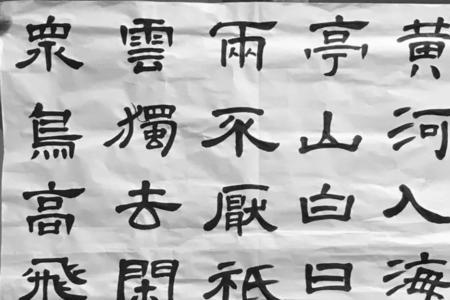 黄河入海
亭山白日
兩不厭祇
雲獨去閑
衆鳥高飛